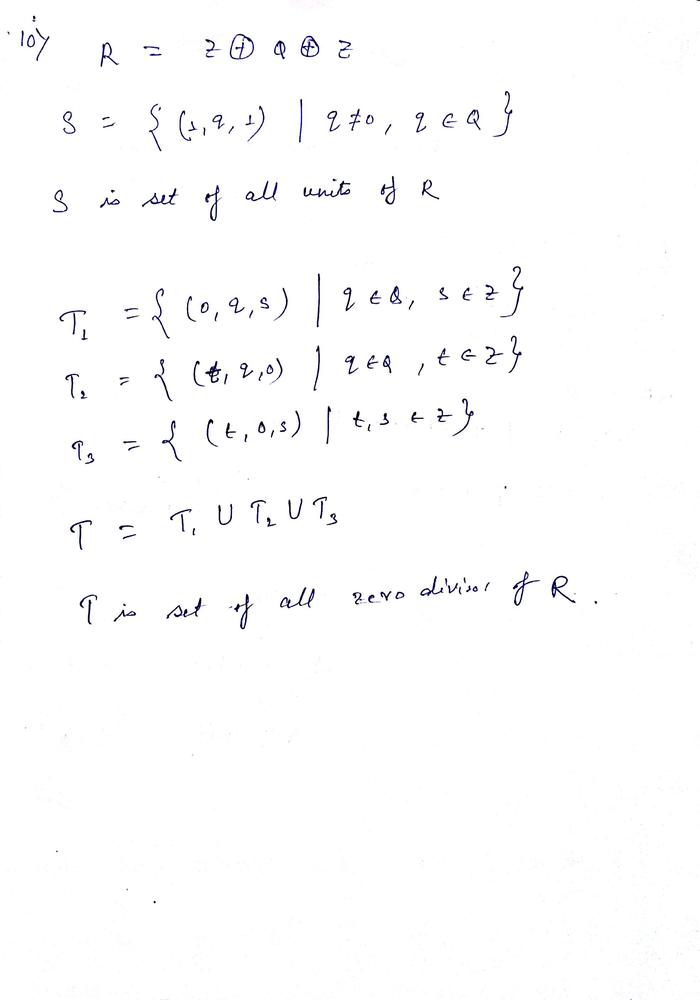 10) R = Z ⊕ Q ⊕ Z
S = { (1, q, 1) | q ≠ 0, q ∈ Q }
S is set of all units of R
T₁ = { (0, q, s) | q ∈ Q, s ∈ Z }
T₂ = { (t, q, 0) | q ∈ Q, t ∈ Z }
T₃ = { (t, 0, s) | t, s ∈ Z }.
T = T₁ ∪ T₂ ∪ T₃
T is set of all zero divisor of R.